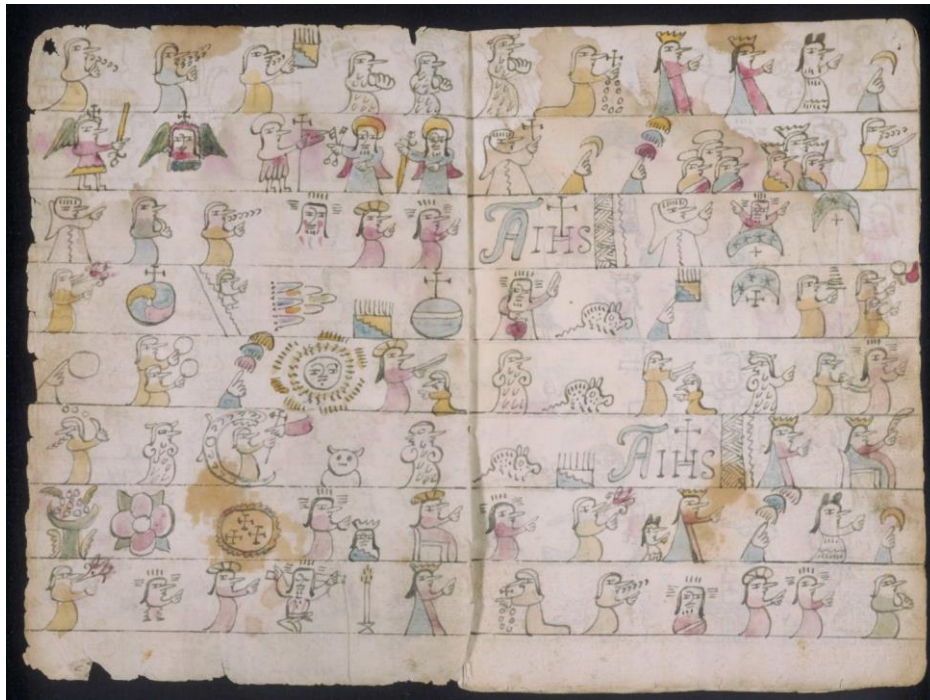 AIHS
AIHS